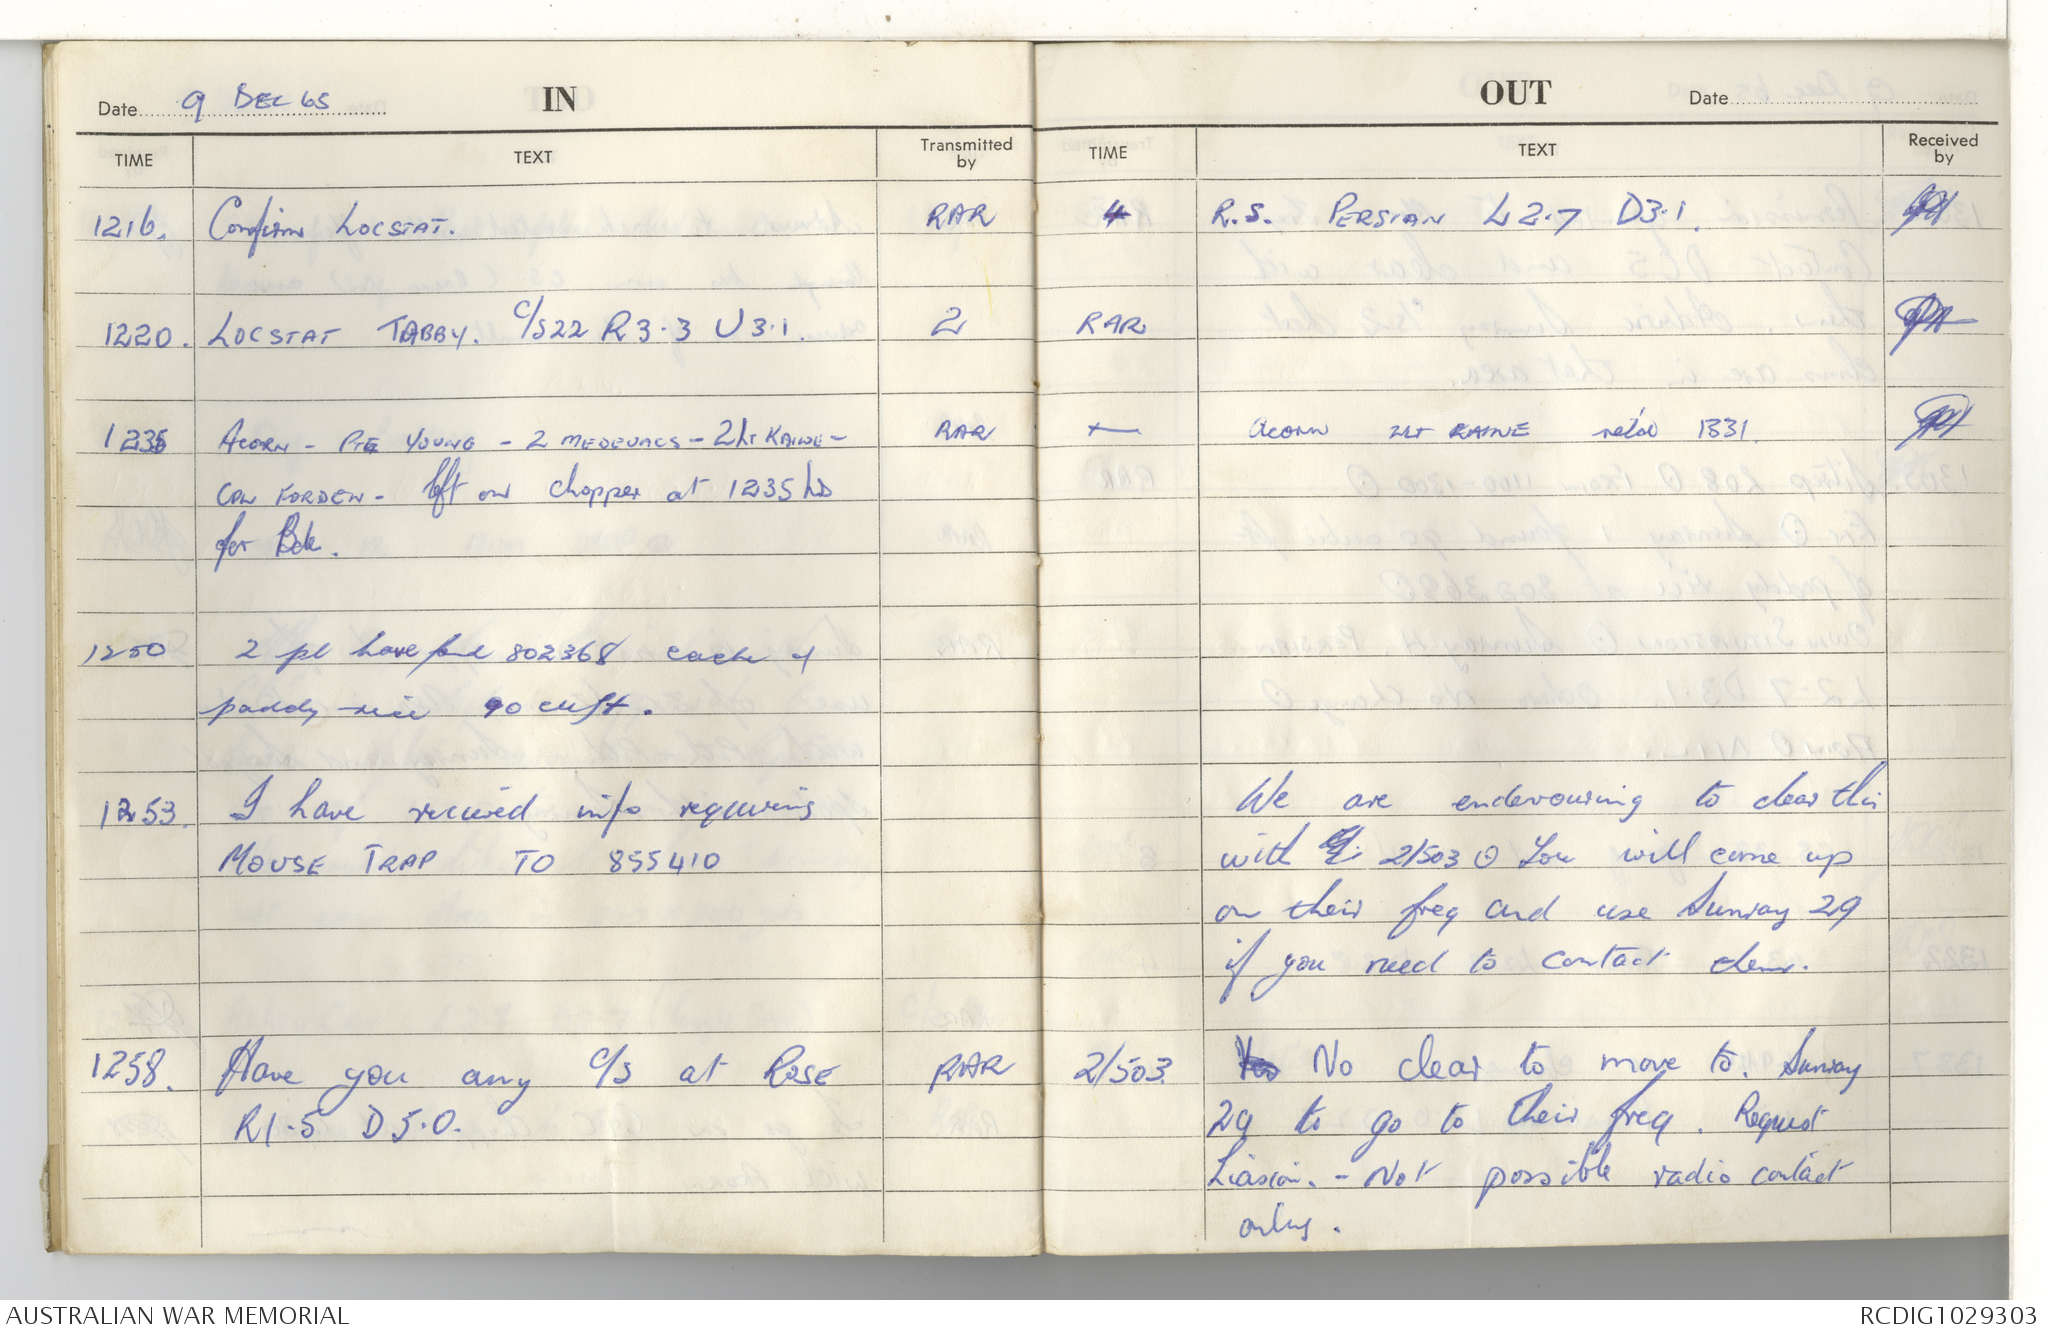 Date 9 DEC 65 IN
TIME TEXT Transmitted by
1216. Confirm LOCSTAT. RAR
1220. LOCSTAT TABBY. C/S22 R3.3 U3.1. 2
1235 ACORN - PTE YOUNG - 2 MEDEVACS - 2Lt KAINE - RAR
CPL FORDEN - left on chopper at 1235 hrs
for Bde.
1250 2 pl have fnd 802368 cache of
paddy rice 90 cuft.
1253. I have recieved info requiring
MOUSE TRAP TO 855410
1258. Have you any C/S at ROSE RAR
R1.5 D5.0.
OUT Date
TIME TEXT Received by
4 R.S. PERSIAN L2.7 D3.1.
RAR
Acorn 2LT RAINE retd 1331.
We are endevouring to clear this
with 2/503 ⊙ You will come up
on their freq and use Sunray 29
if you need to contact them.
2/503 No clear to move to. Sunray
29 to go to their freq. Request
Liasion. - Not possible radio contact
only.
AUSTRALIAN WAR MEMORIAL RCDIG1029303